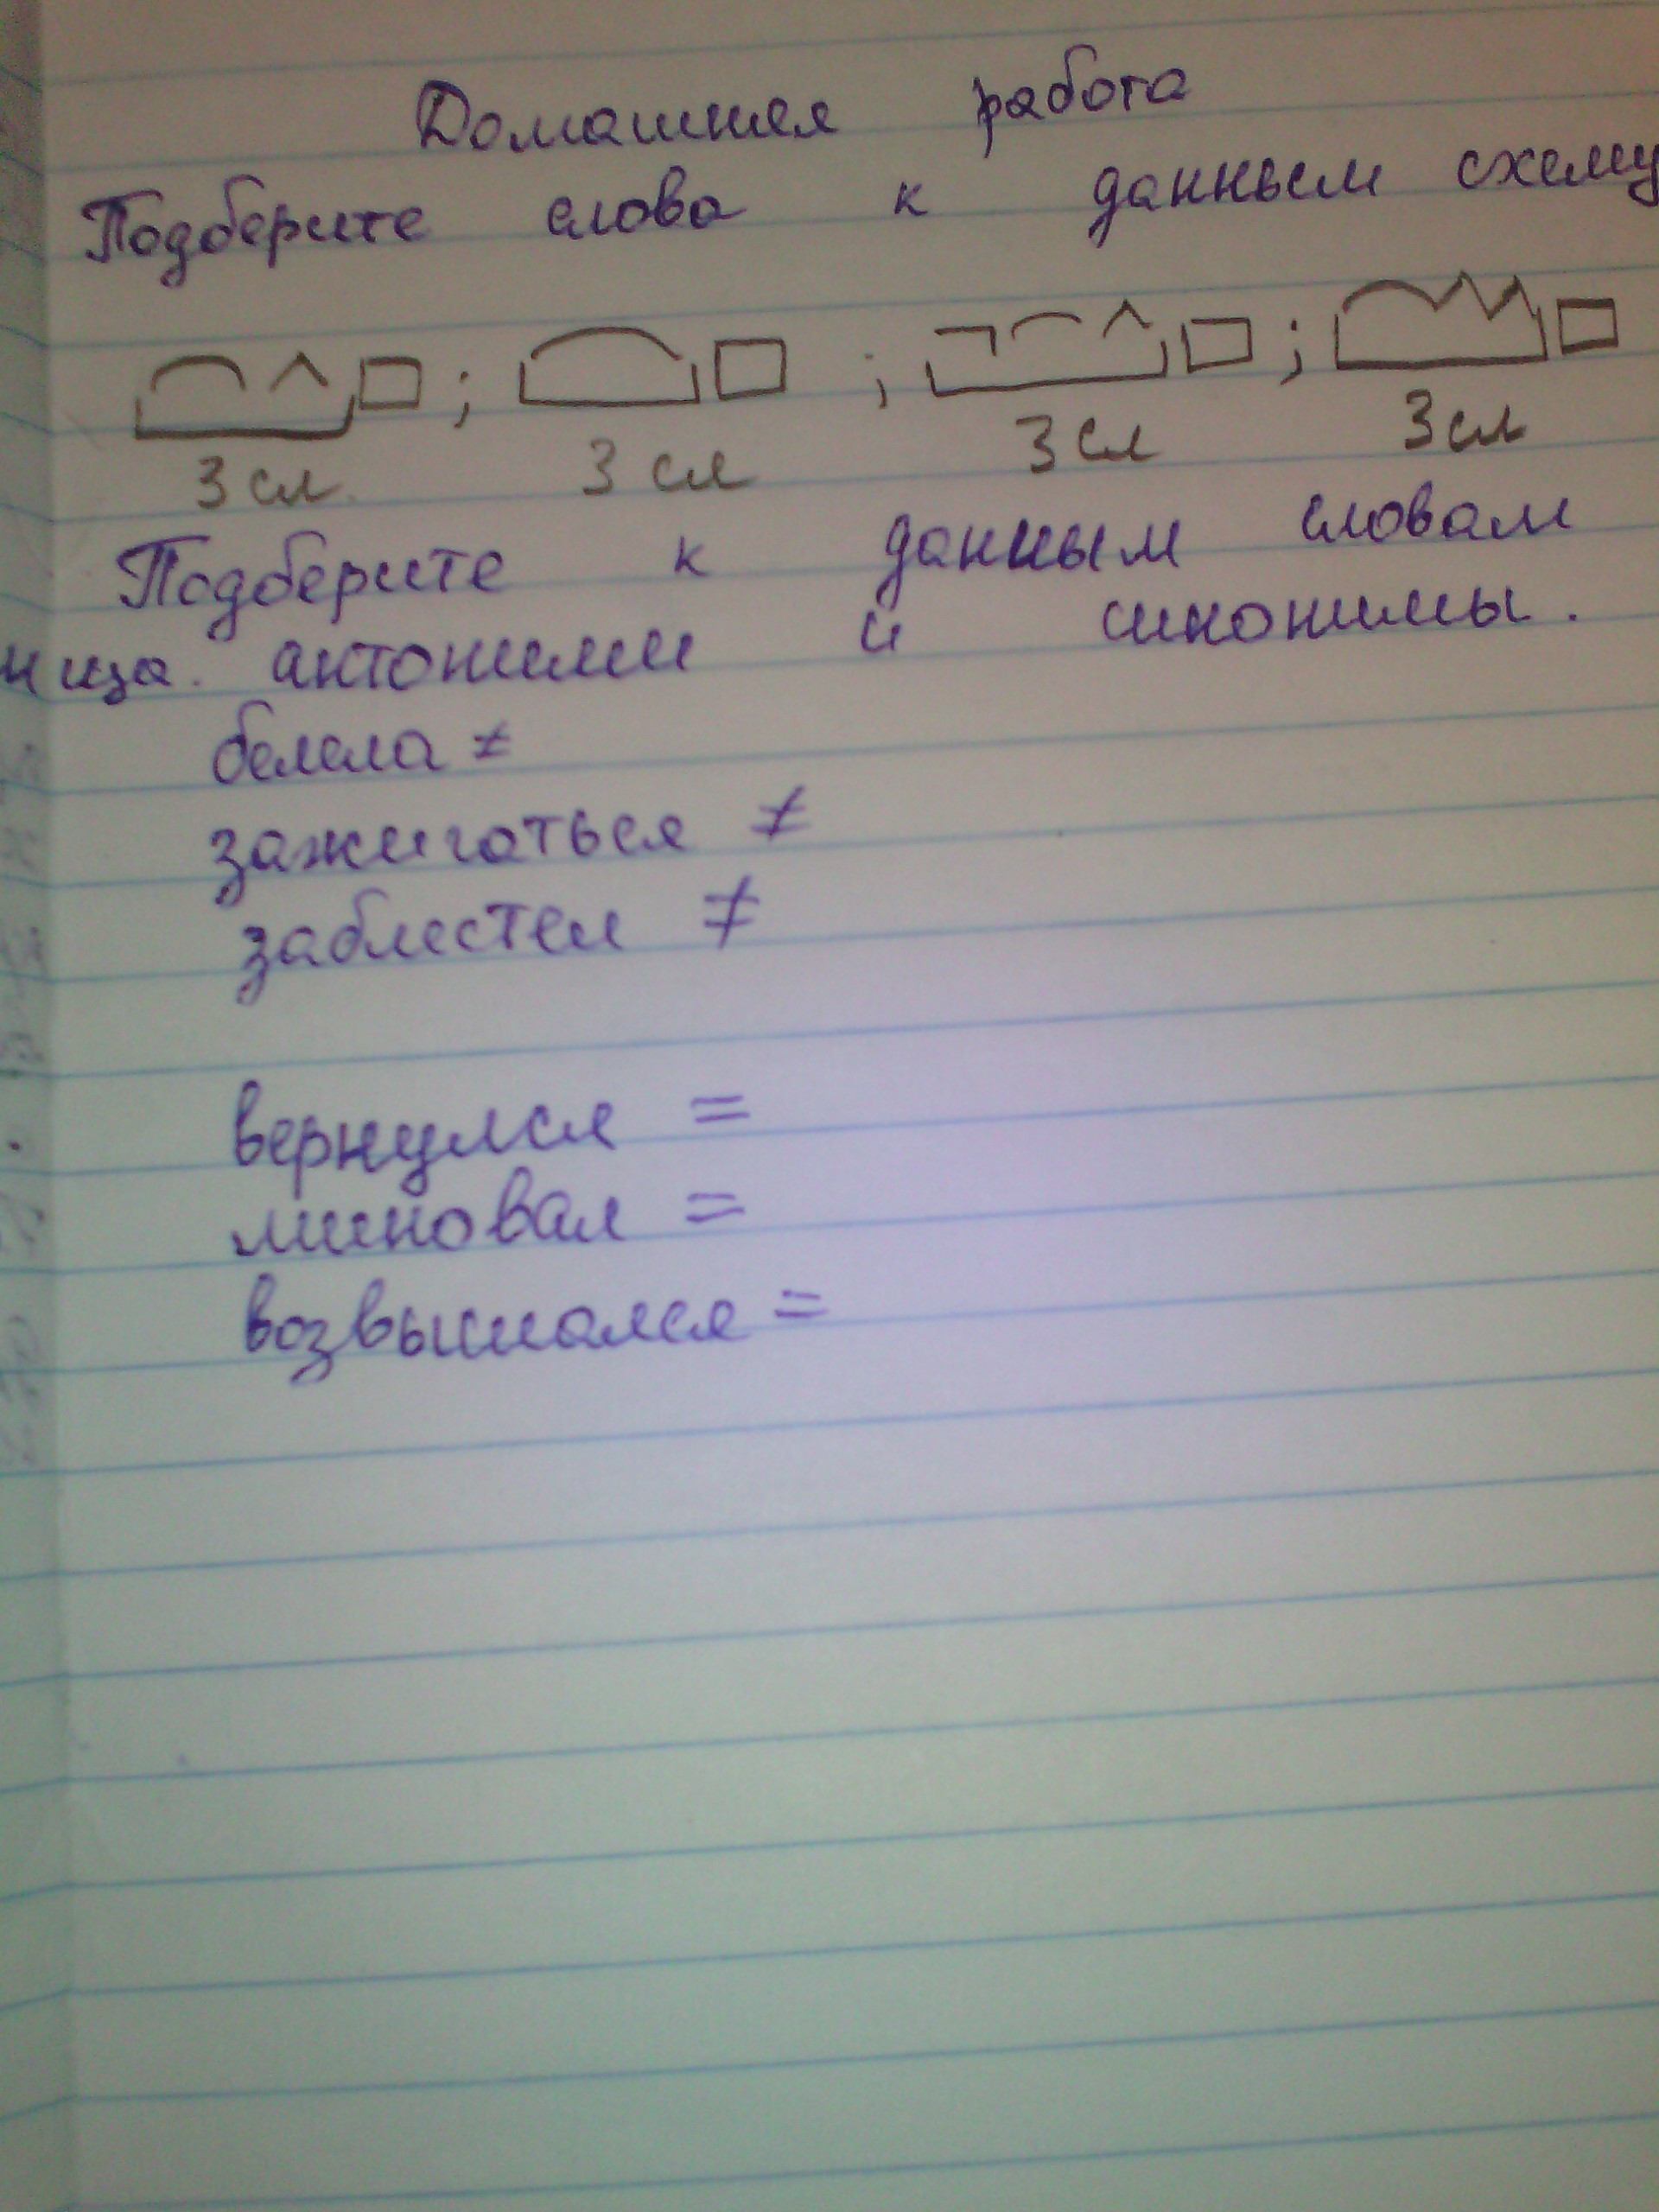 Домашняя работа
Подберите слова к данным схему
; ; ;
3 сл. 3 сл 3 сл 3 сл
Подберите к данным словам
антонимы и синонимы.
белела ≠
зажигаться ≠
заблестел ≠
вернулся =
миновал =
возвышался =